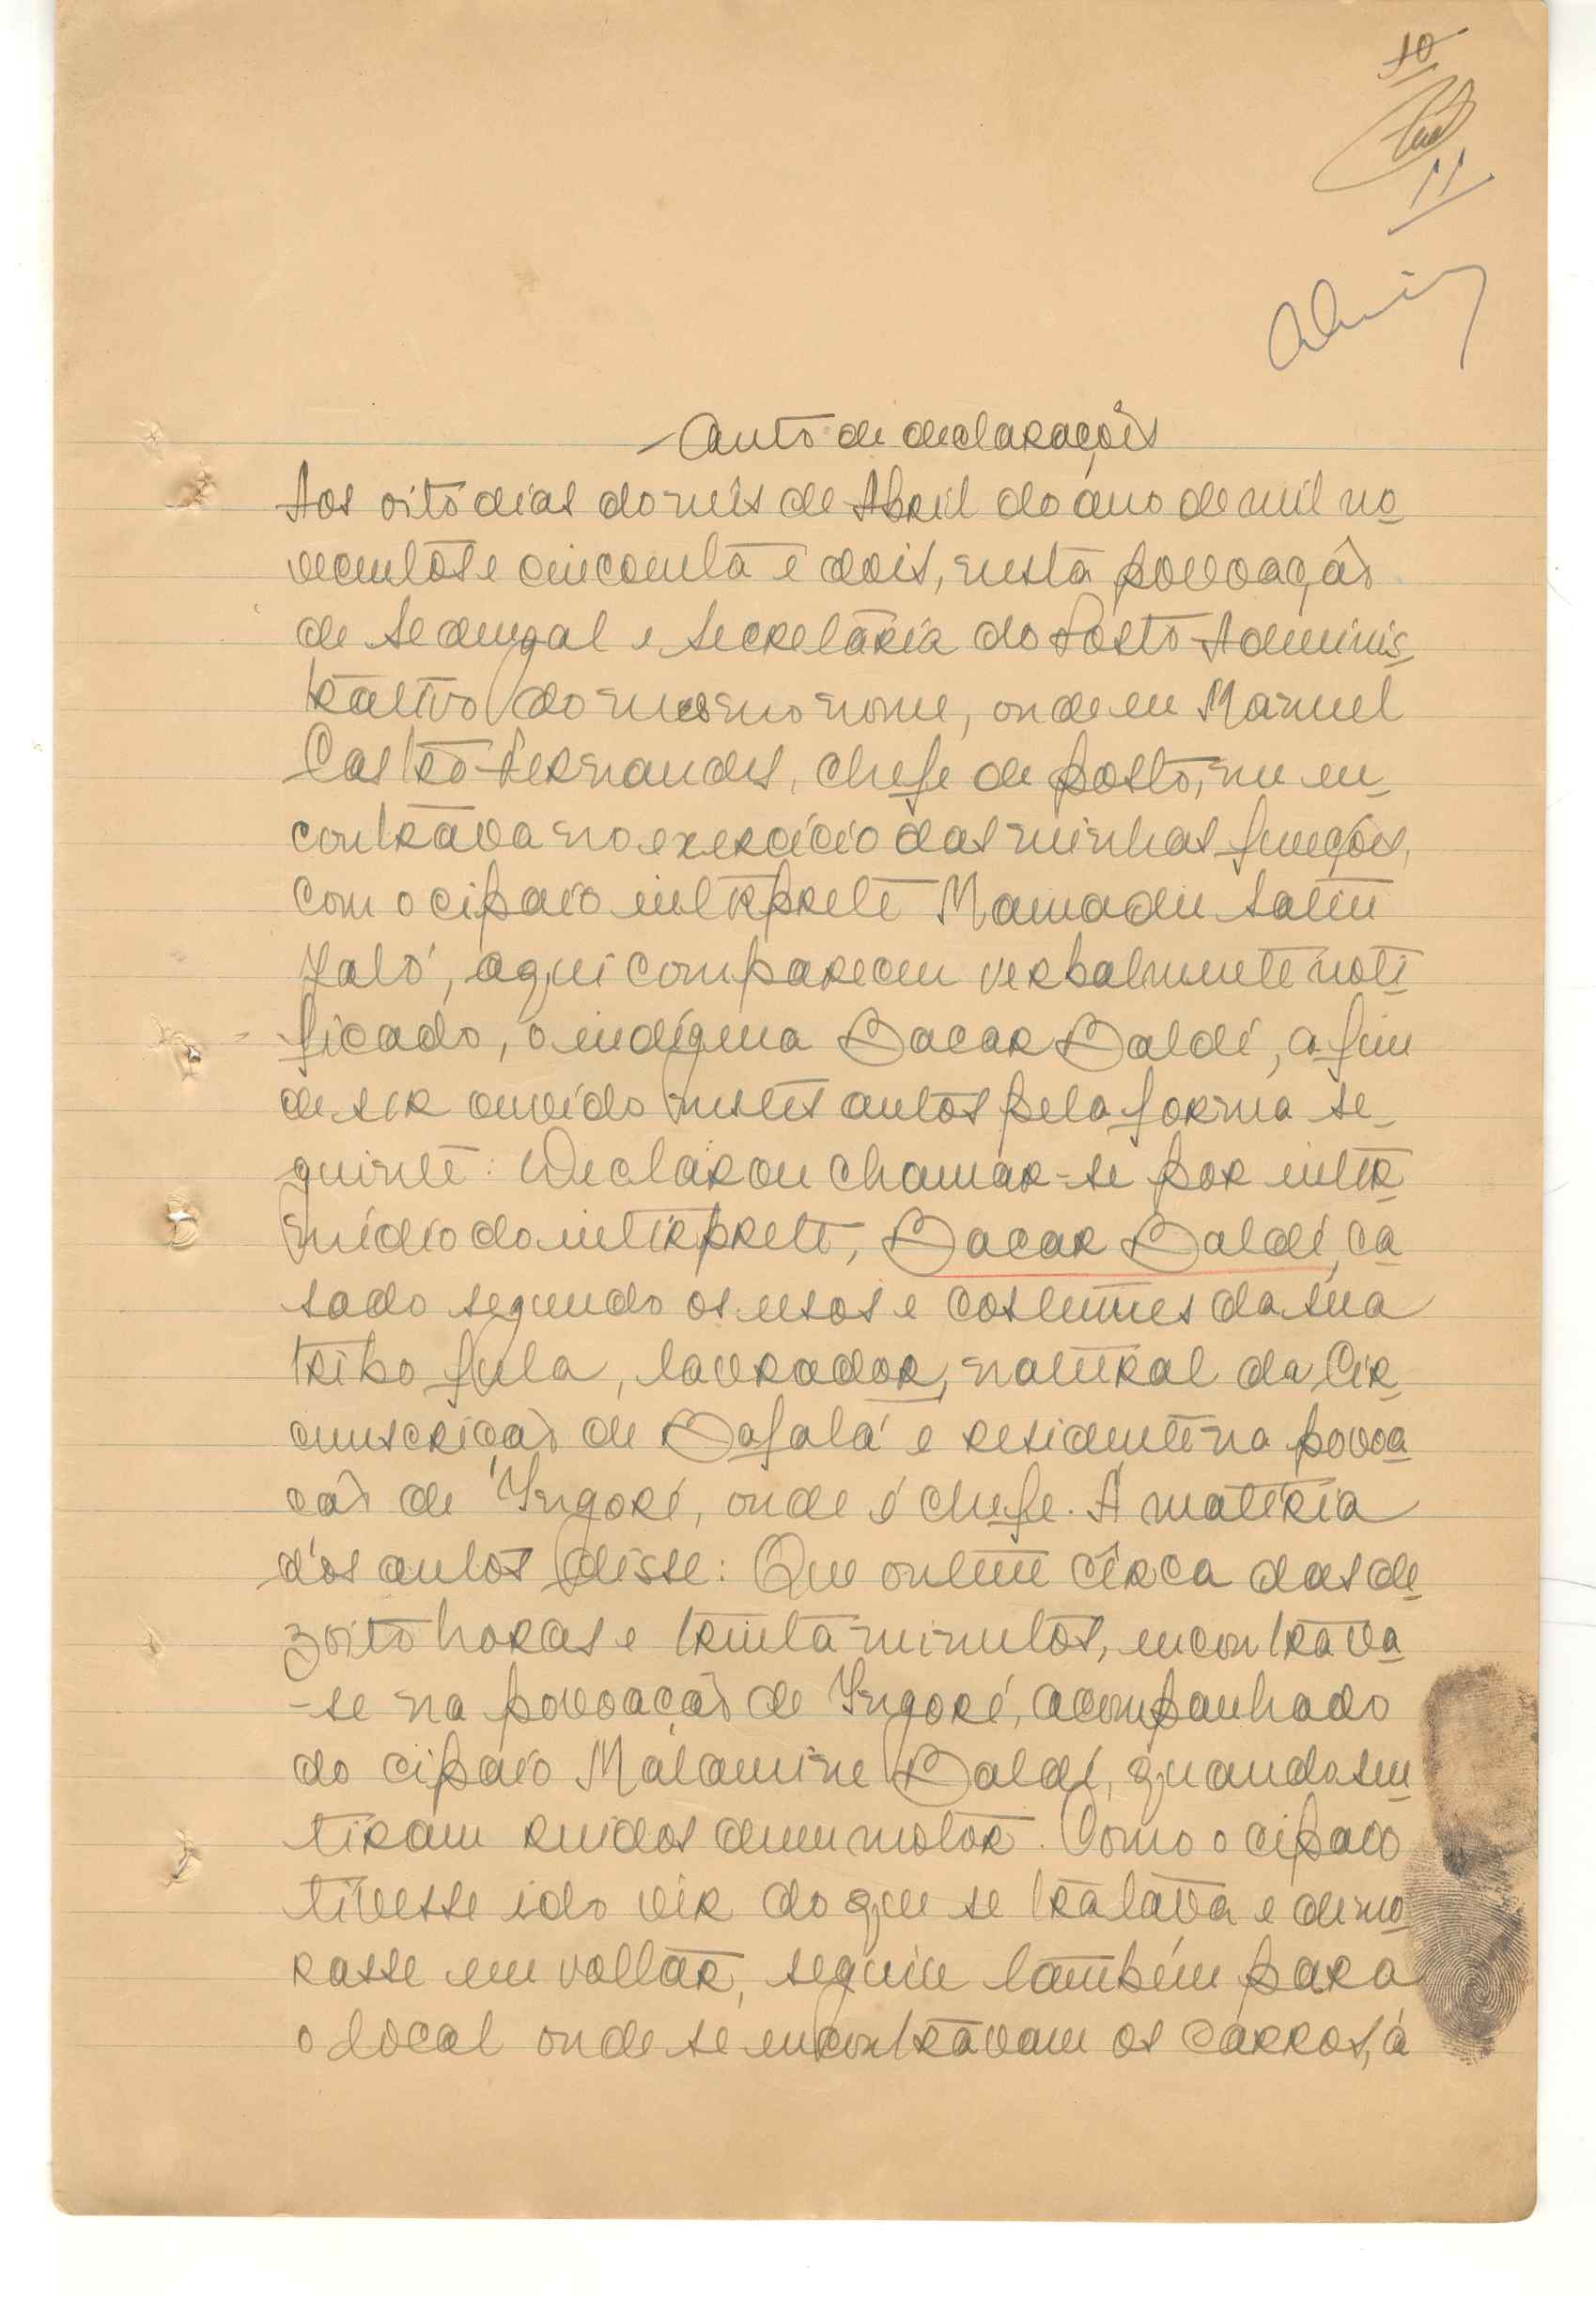 10
11
Auto de declarações
Aos oito dias do mês de Abril do ano de mil no
vecentos e cincoenta e dois, nesta povoação
de Sedengal e secretária do Posto Adminis
trativo do mesmo nome, onde eu Manuel
Castro Fernandes, chefe de posto, me en
contrava no exercício das minhas funções,
com o cipaio intérprete Mamadu Satu
Jaló, aqui compareceu verbalmente noti
ficado, o indígena Bacar Baldé, a fim
de ser ouvido nestes autos pela forma se
guinte: Declarou chamar-se por inter
médio do intérprete, Bacar Baldé, ca
sado segundo os usos e costumes da sua
tribo fula, lavrador, natural da Cir
cunscrição de Bafatá e residente na povoa
ção de Ingoré, onde é chefe. Á matéria
dos autos disse: Que ontem cêrca das de
zoito horas e trinta minutos, encontrava
-se na povoação de Ingoré, acompanhado
do cipaio Malamine Baldé, quando sen
tiram ruidos dum motor. Como o cipaio
tivesse ido vêr do que se tratava e demo
rasse em voltar, seguiu também para
o local onde se encontravam os carros, á